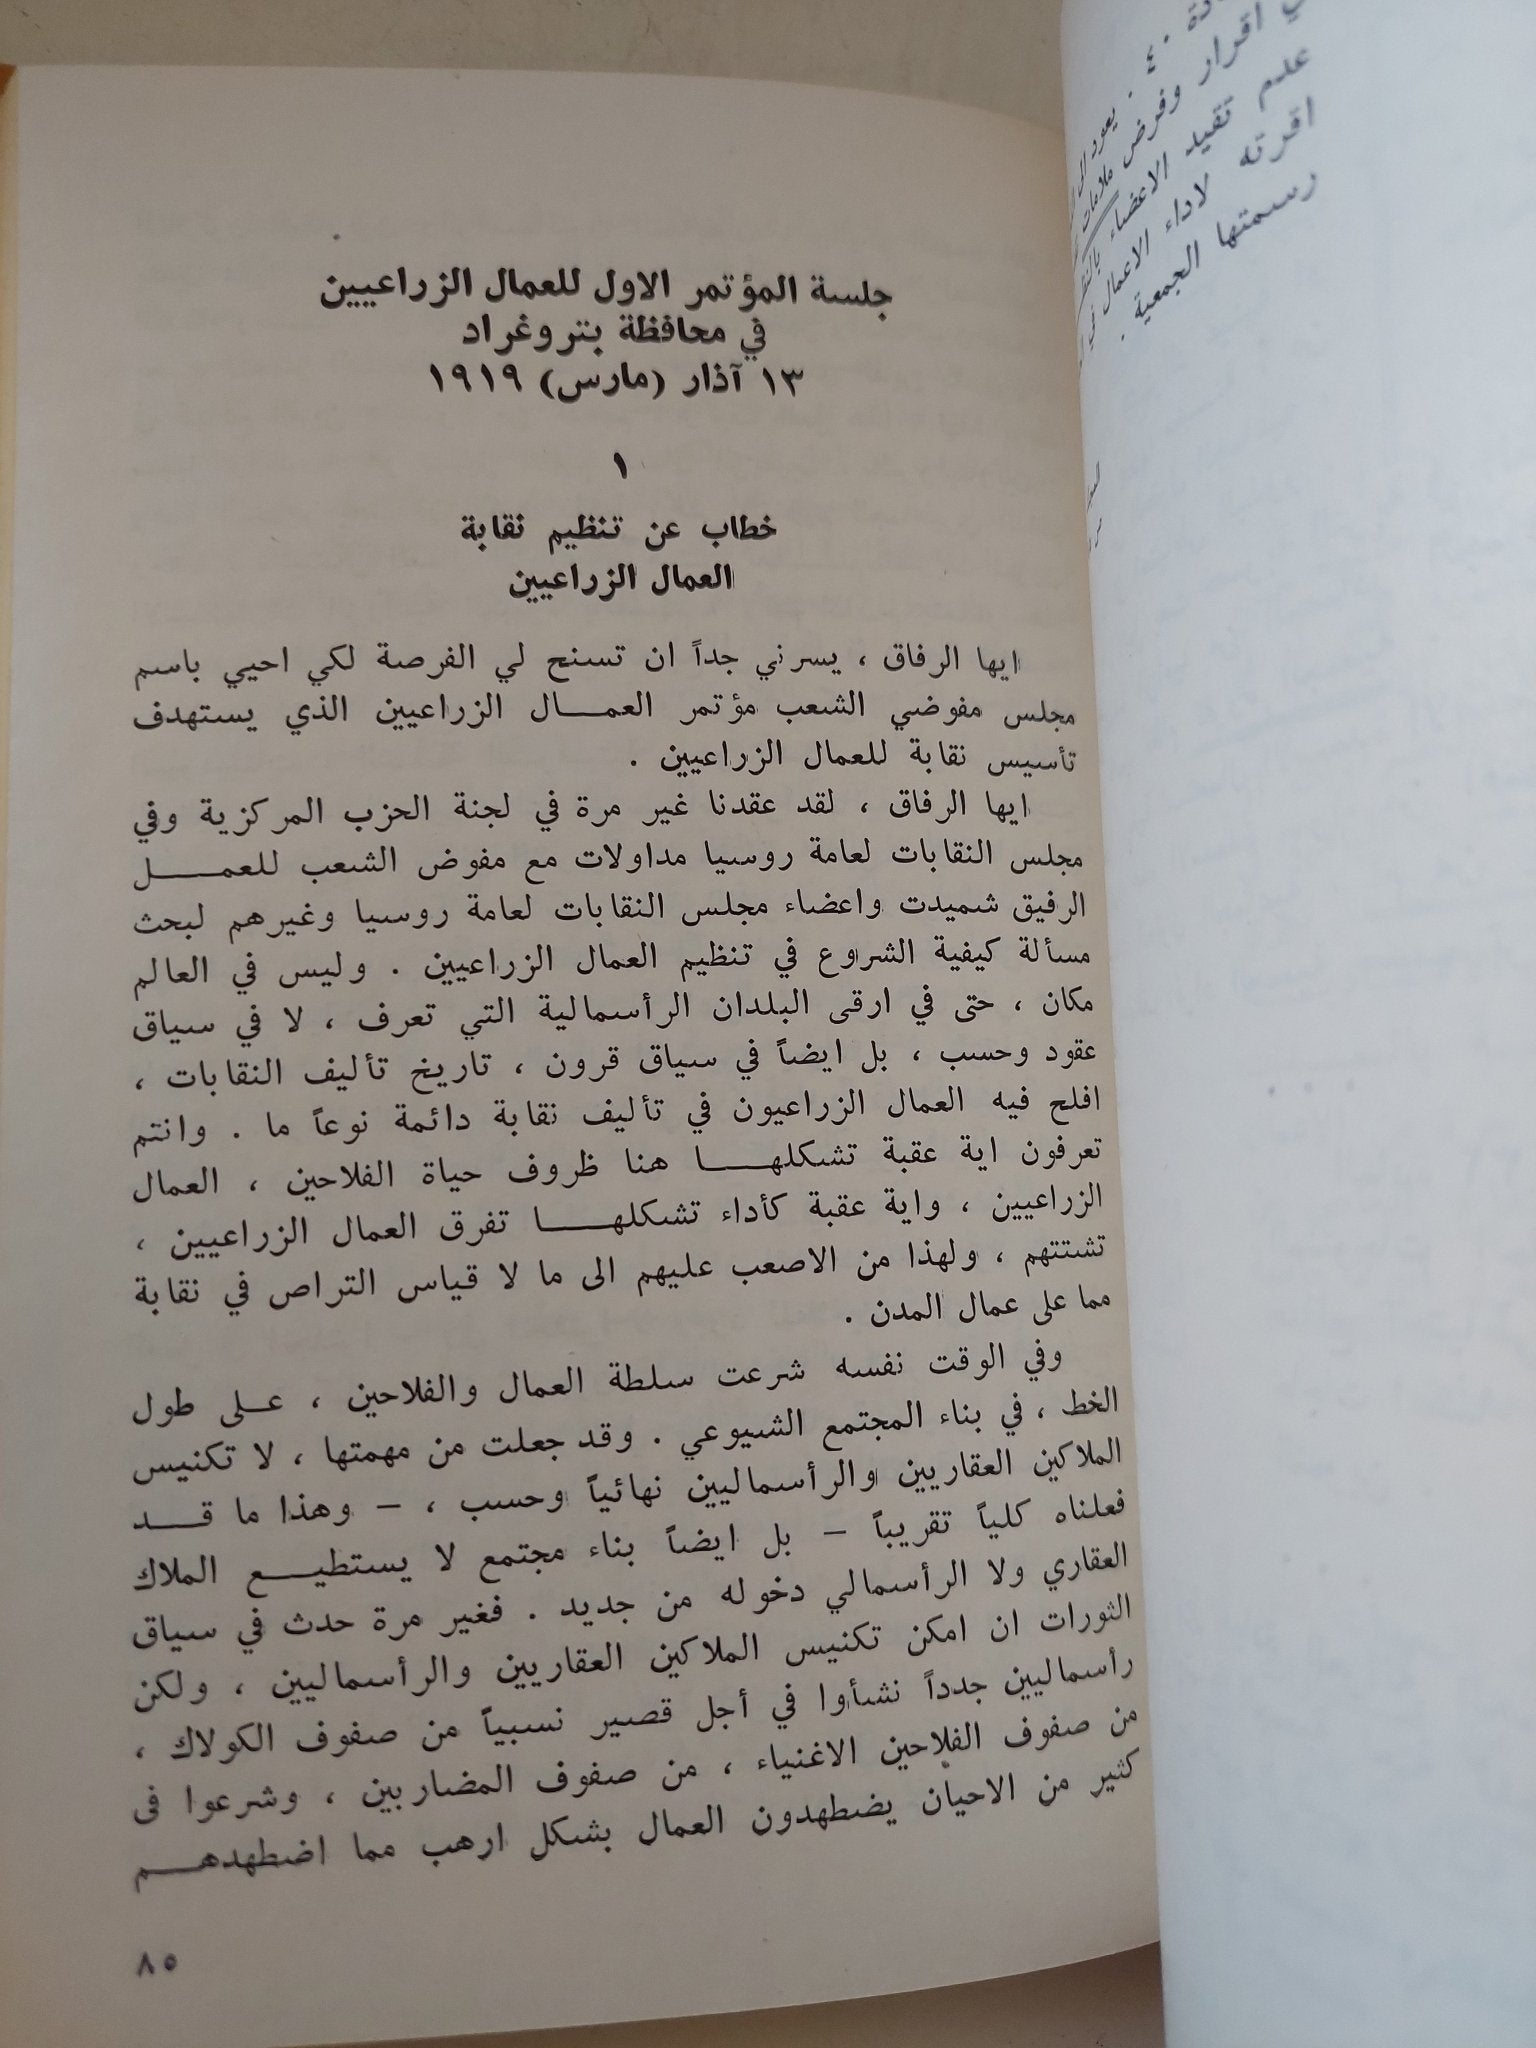 جلسة المؤتمر الاول للعمال الزراعيين
في محافظة بتروغراد
١٣ آذار (مارس) ١٩١٩
١
خطاب عن تنظيم نقابة
العمال الزراعيين
ايها الرفاق ، يسرني جداً ان تسنح لي الفرصة لكي احيي باسم
مجلس مفوضي الشعب مؤتمر العمـــال الزراعيين الذي يستهدف
تأسيس نقابة للعمال الزراعيين .
ايها الرفاق ، لقد عقدنا غير مرة في لجنة الحزب المركزية وفي
مجلس النقابات لعامة روسيا مداولات مع مفوض الشعب للعمـــل
الرفيق شميدت واعضاء مجلس النقابات لعامة روسيا وغيرهم لبحث
مسألة كيفية الشروع في تنظيم العمال الزراعيين . وليس في العالم
مكان ، حتى في ارقى البلدان الرأسمالية التي تعرف ، لا في سياق
عقود وحسب ، بل ايضاً في سياق قرون ، تاريخ تأليف النقابات ،
افلح فيه العمال الزراعيون في تأليف نقابة دائمة نوعاً ما . وانتم
تعرفون اية عقبة تشكلهـــا هنا ظروف حياة الفلاحين ، العمال
الزراعيين ، واية عقبة كأداء تشكلهـــا تفرق العمال الزراعيين ،
تشتتهم ، ولهذا من الاصعب عليهم الى ما لا قياس التراص في نقابة
مما على عمال المدن .
وفي الوقت نفسه شرعت سلطة العمال والفلاحين ، عـلى طول
الخط ، في بناء المجتمع الشيوعي . وقد جعلت من مهمتها ، لا تكنيس
الملاكين العقاريين والرأسماليين نهائياً وحسب ، – وهذا ما قـــد
فعلناه كلياً تقريباً – بل ايضاً بناء مجتمع لا يستطيـــع الملاك
العقاري ولا الرأسمالي دخوله من جديد . فغير مرة حدث في سياق
الثورات ان امكن تكنيس الملاكين العقاريين والرأسماليين ، ولكن
رأسماليين جدداً نشأوا في أجل قصير نسبياً من صفوف الكولاك ،
من صفوف الفلاحين الاغنياء ، من صفوف المضاربين ، وشرعوا في
كثير من الاحيان يضطهدون العمال بشكل ارهب مما اضطهدهـــم
٨٥
٤٠ . يعود الى
اقرار وفرض ملامات
علم تقيد الاعضاء
اقرته لاداء الاعمال
رسمتها الجمعية .